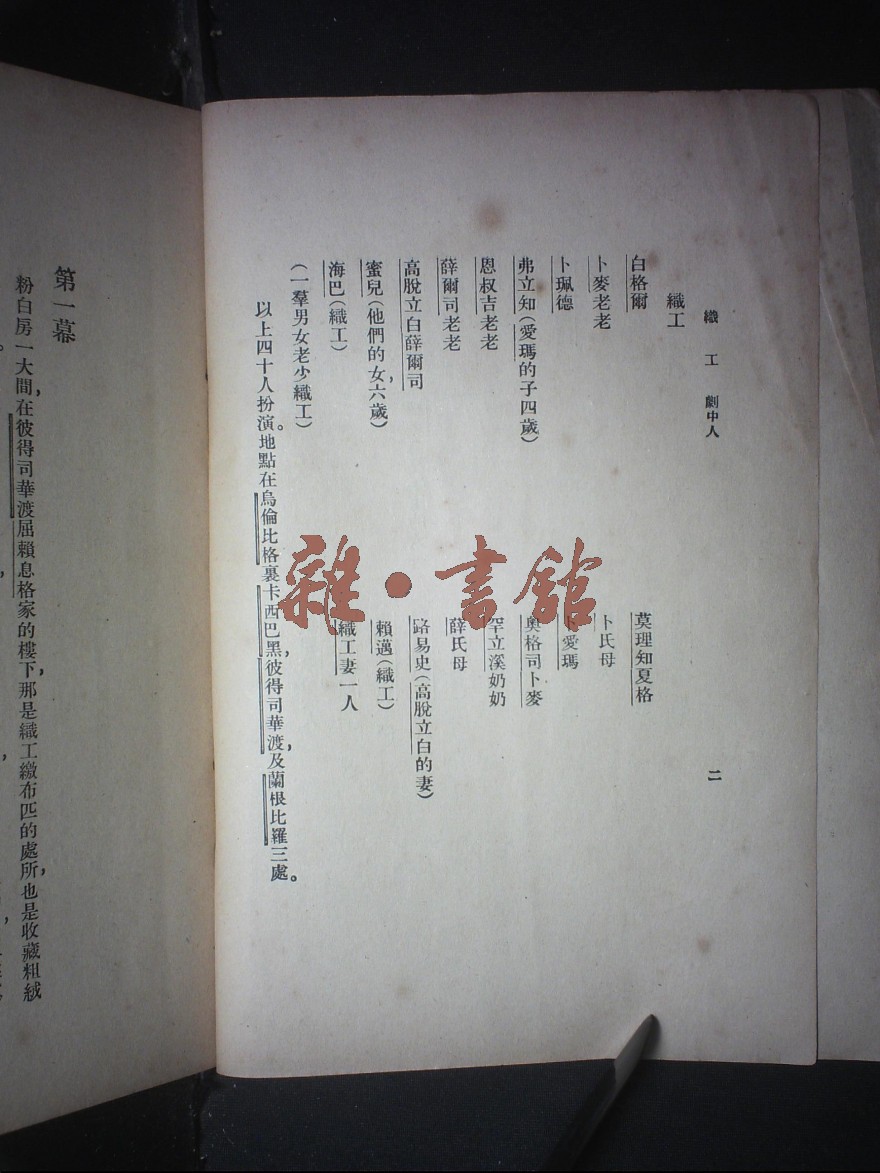 織工 劇中人 二
織工
白格爾 莫理知夏格
卜麥老老 卜氏母
卜珮德 卜愛瑪
弗立知(愛瑪的子四歲) 奧格司卜麥
恩叔吉老老 罕立溪奶奶
薛爾司老老 薛氏母
高脫立白薛爾司 路易史(高脫立白的妻)
蜜兒(他們的女六歲) 賴邁(織工)
海巴(織工) 織工妻一人
(一羣男女老少織工)
以上四十人扮演。地點在烏倫比格裏卡西巴黑,彼得司華渡,及蘭根比羅三處。
第一幕
粉白房一大間,在彼得司華渡屈賴息格家的樓下,那是織工繳布匹的處所,也是收藏粗絨
雜·書館